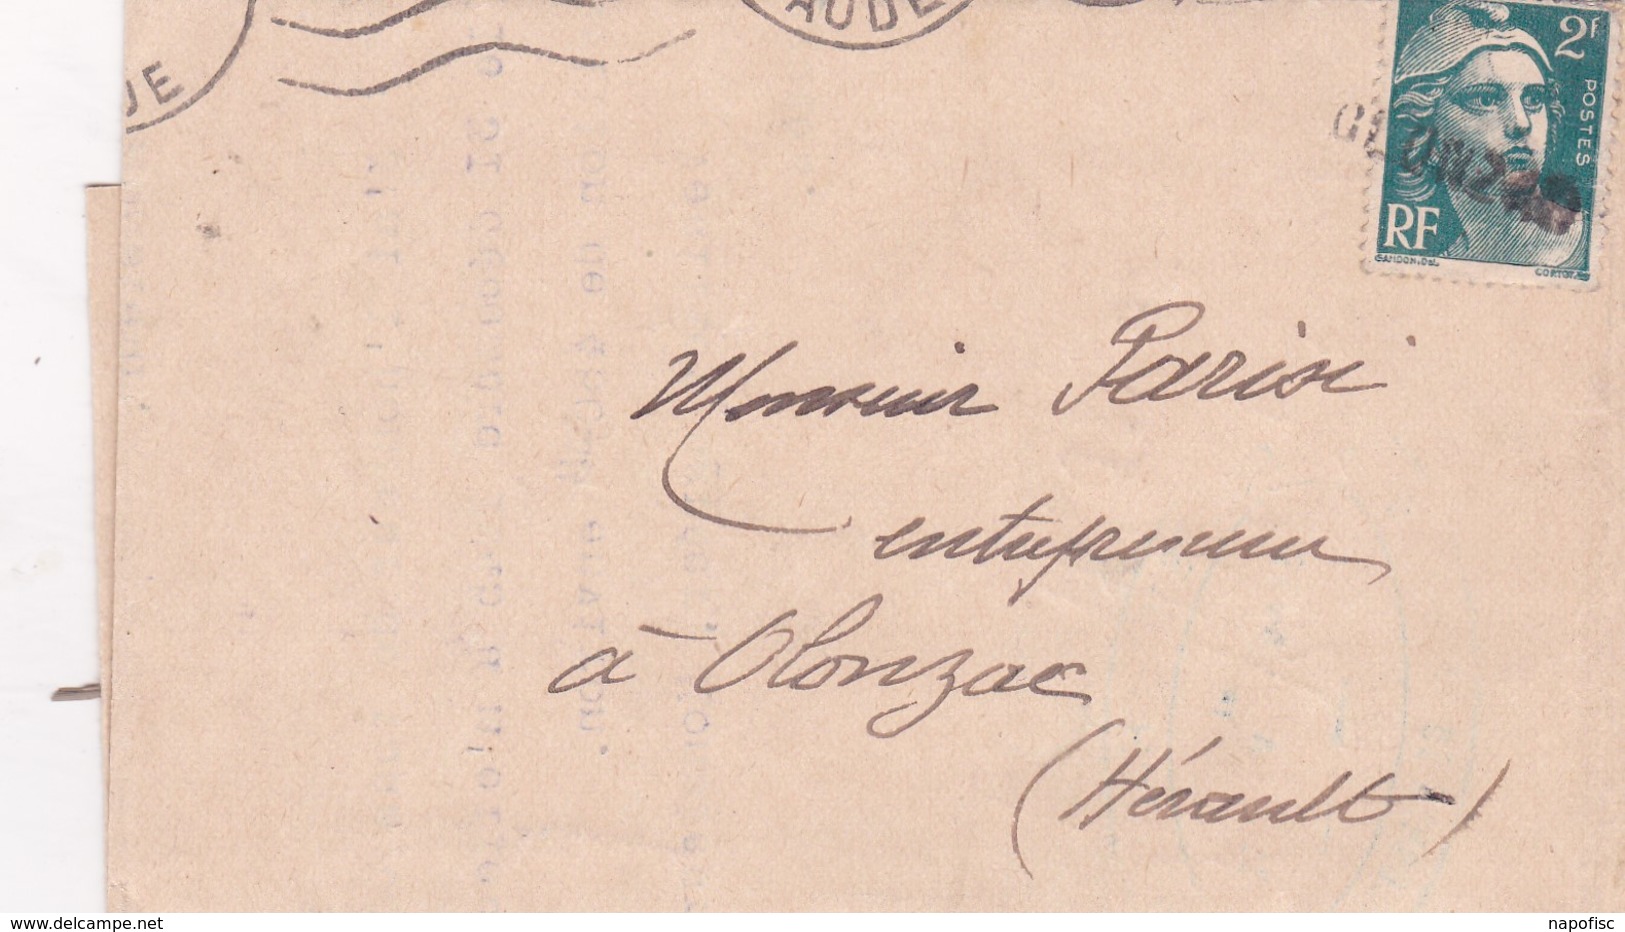 UE
AUDE
2F
POSTES
RF
GANDON.Del.
Monsieur Parisi
entrepreneur
à Olonzac
(Hérault)
www.delcampe.net
napofisc